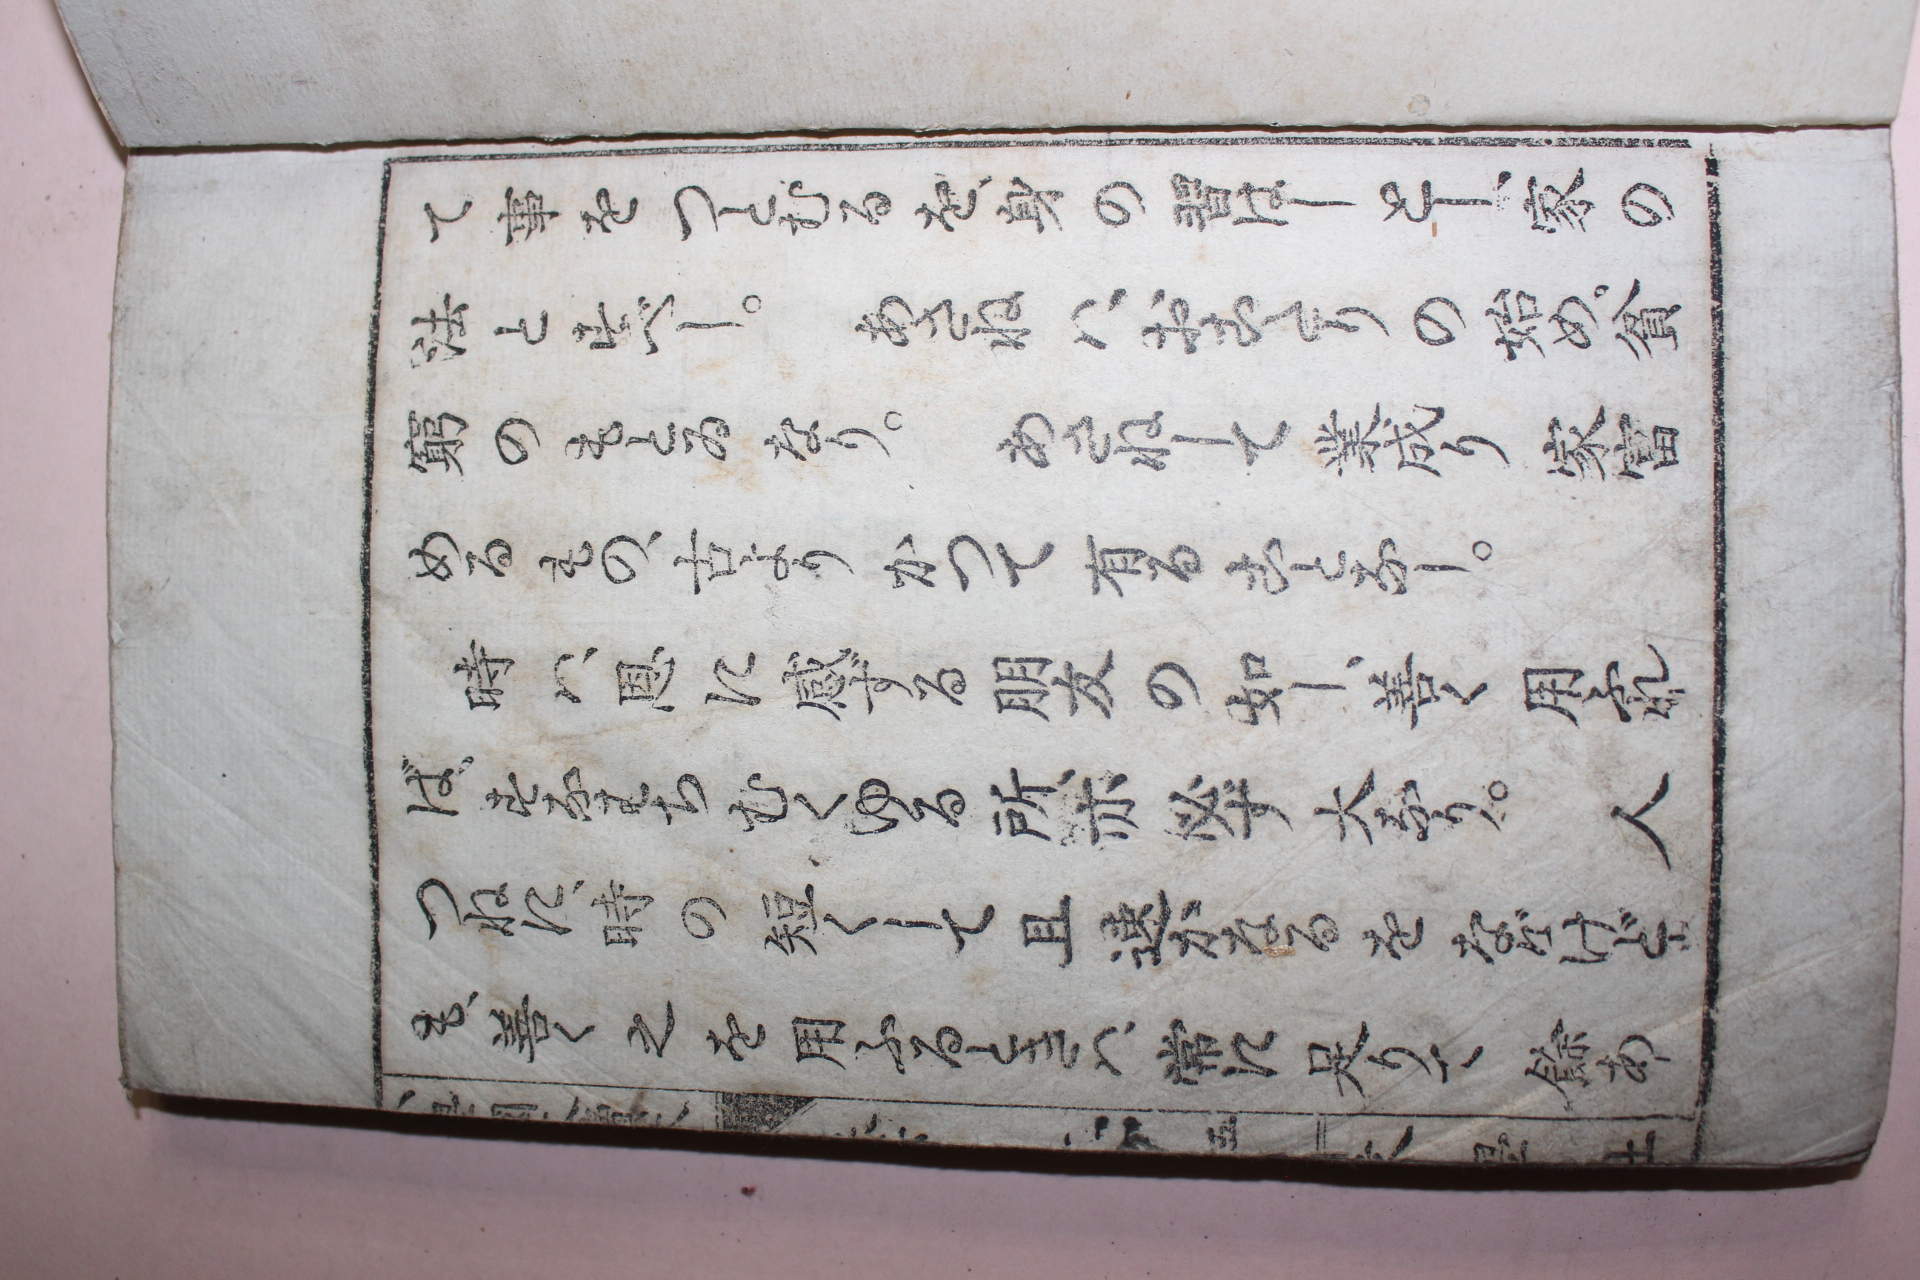 て事をつとむるを、身の習はしとし、家の
法とすべし。　あさねハ、おこたりの始め。貧
窮のもとゐなり。　あさねして業成り家富
めるもの、古よりかつて有ることなし。
時ハ、恩に感ずる朋友の如し、善く用ふれ
ば、すなはちむくゆる所、亦必ず大なり。　人
つねに、時の短くして且速かなるをなげけども
も、善く之を用ふるときハ、常に足りて餘あ
五